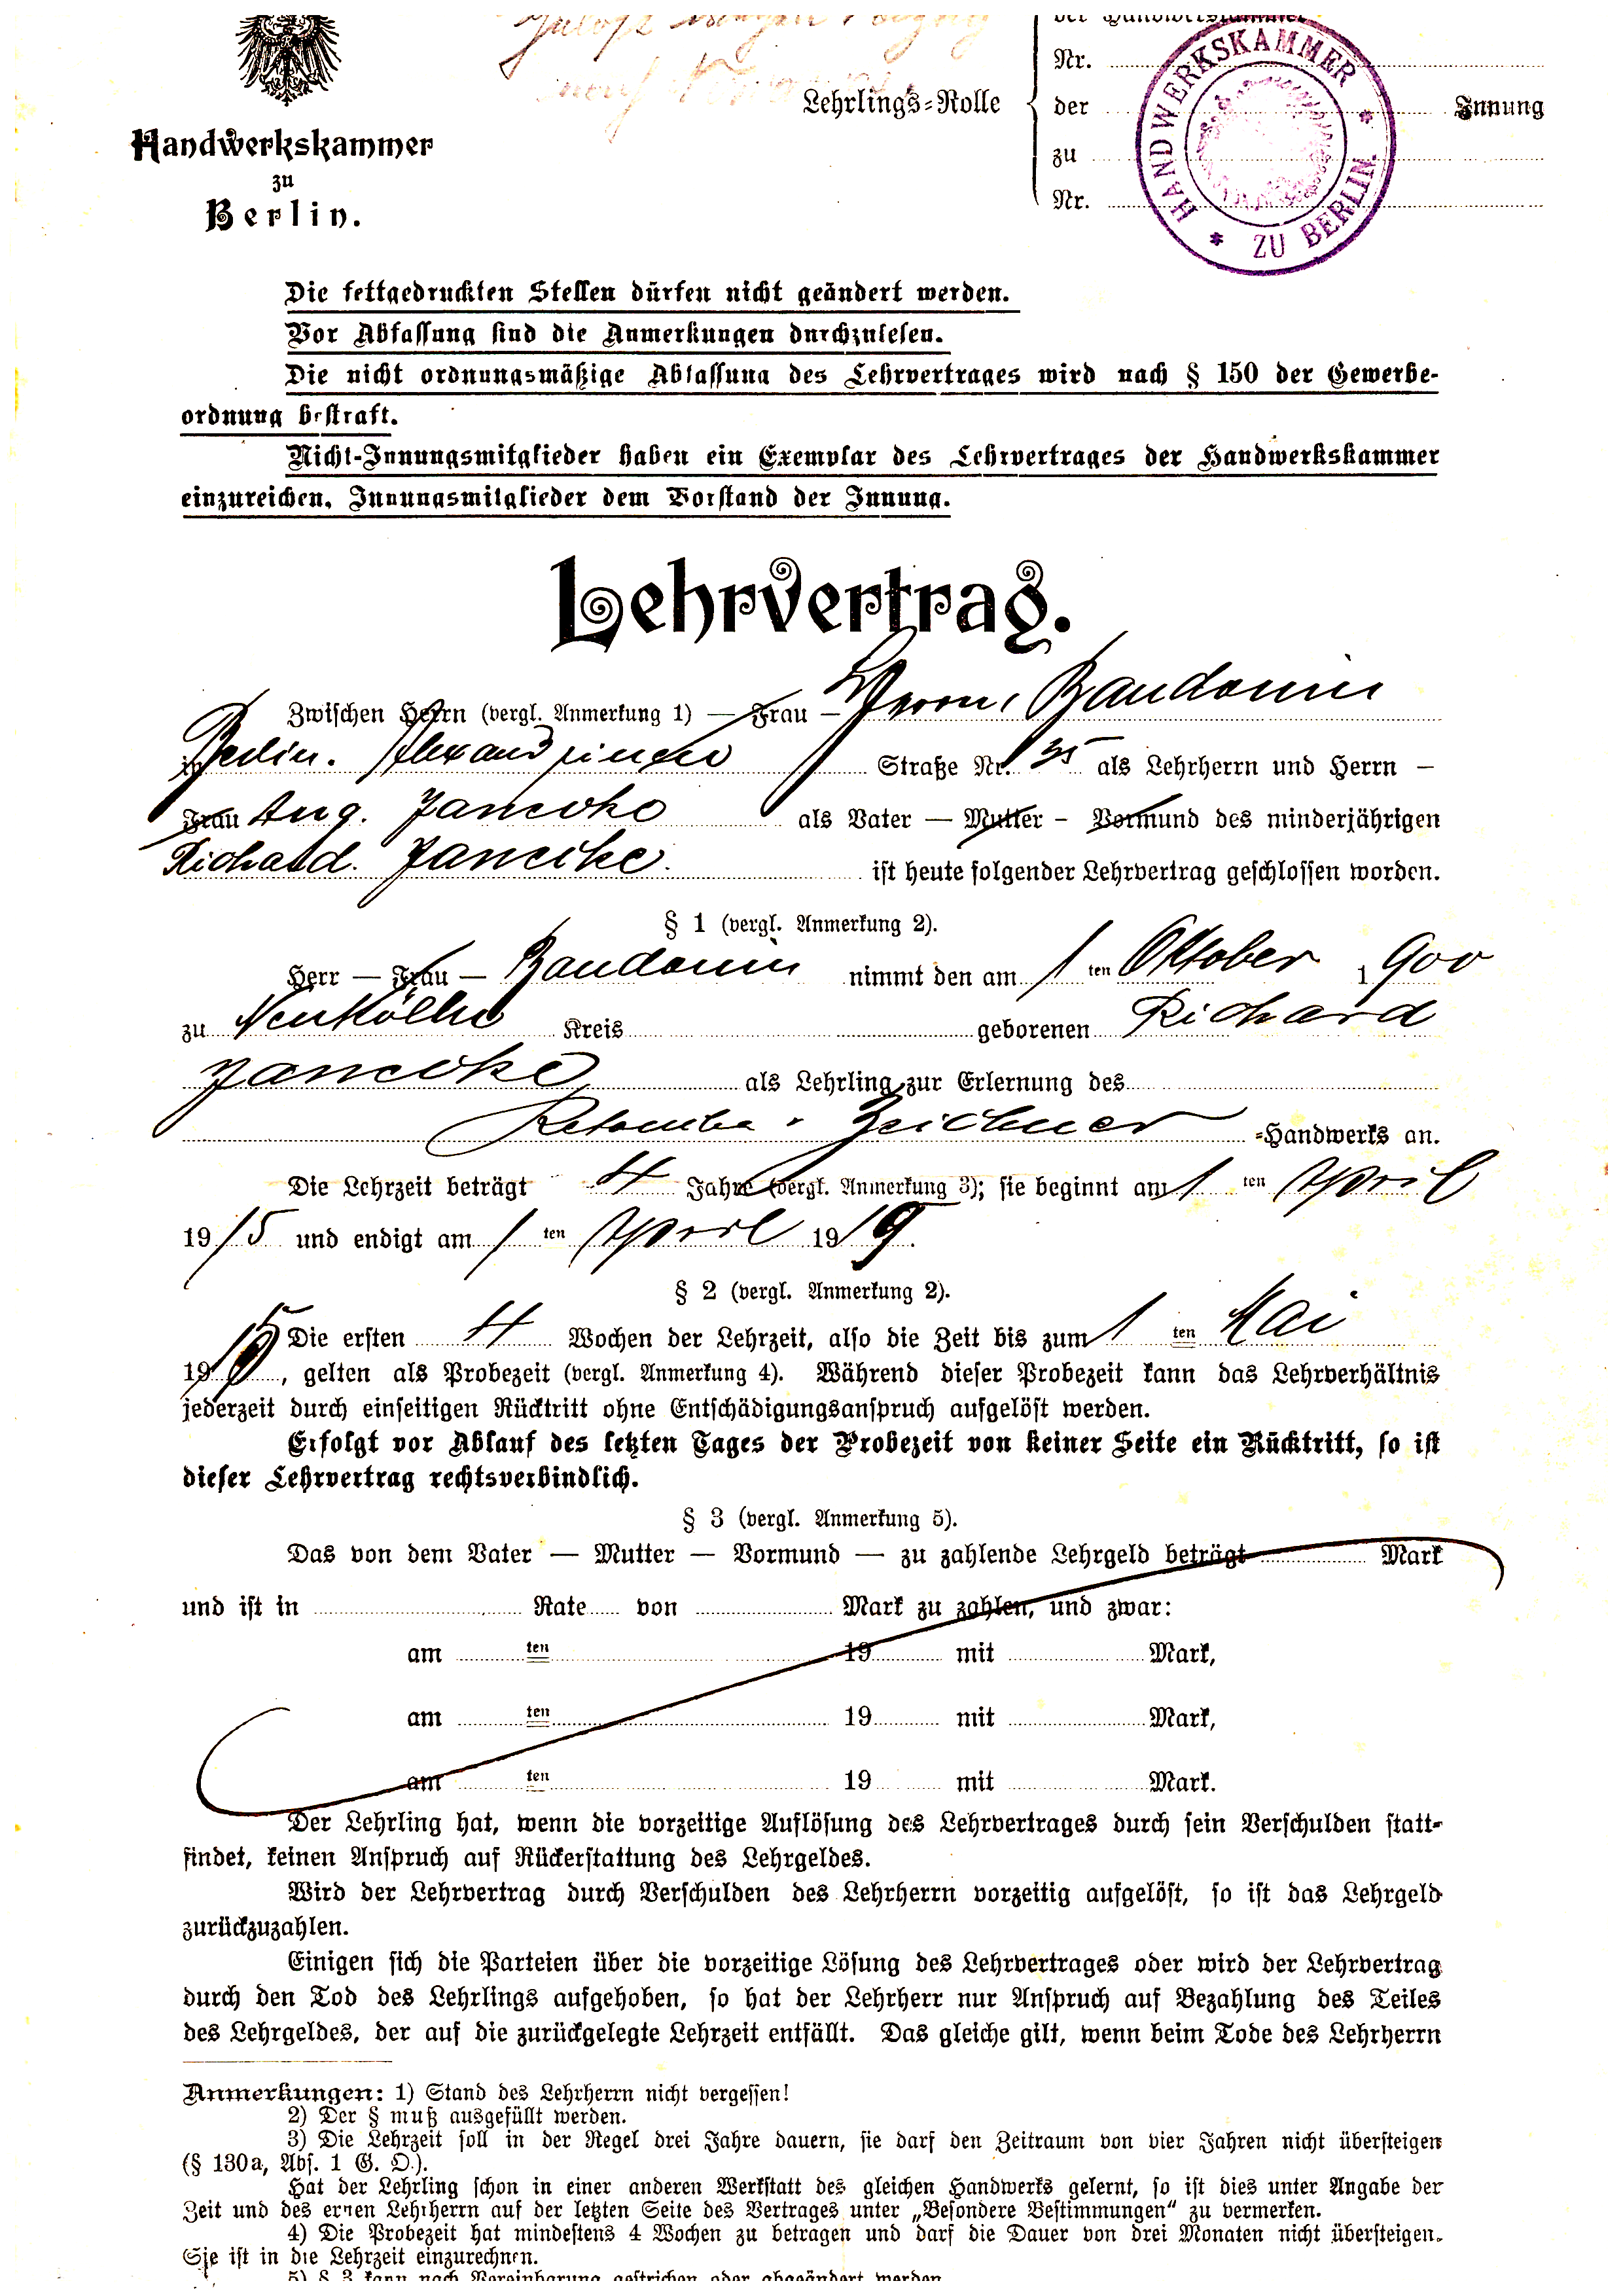 der Handwerskammer
Nr.
Lehrlings-Rolle
der Innung
zu
Nr.
HANDWERKSKAMMER * ZU BERLIN. *
Handwerkskammer
zu
Berlin.
Die fettgedruckten Stellen dürfen nicht geändert werden.
Vor Abfassung sind die Anmerkungen durchzulesen.
Die nicht ordnungsmäßige Abfassung des Lehrvertrages wird nach § 150 der Gewerbe-
ordnung bestraft.
Nicht-Innungsmitglieder haben ein Exemplar des Lehrvertrages der Handwerkskammer
einzureichen, Innungsmitglieder dem Vorstand der Innung.
Lehrvertrag.
Zwischen Herrn (vergl. Anmerkung 1) — Frau — Baudouin
in Berlin. Alexandrinen Straße Nr. 35 als Lehrherrn und Herrn —
Frau Aug. Janecke als Vater — Mutter — Vormund des minderjährigen
Richard Janecke. ist heute folgender Lehrvertrag geschlossen worden.
§ 1 (vergl. Anmerkung 2).
Herr — Frau — Baudouin nimmt den am 1 ten Oktober 1 900
zu Neukölln Kreis geborenen Richard
Janecke als Lehrling zur Erlernung des
Zeichner -Handwerks an.
Die Lehrzeit beträgt 4 Jahre (vergl. Anmerkung 3); sie beginnt am 1 ten April
19 15 und endigt am 1 ten April 19 19.
§ 2 (vergl. Anmerkung 2).
Die ersten 4 Wochen der Lehrzeit, also die Zeit bis zum 1 ten Mai
19 15, gelten als Probezeit (vergl. Anmerkung 4). Während dieser Probezeit kann das Lehrverhältnis
jederzeit durch einseitigen Rücktritt ohne Entschädigungsanspruch aufgelöst werden.
Erfolgt vor Ablauf des letzten Tages der Probezeit von keiner Seite ein Rücktritt, so ist
dieser Lehrvertrag rechtsverbindlich.
§ 3 (vergl. Anmerkung 5).
Das von dem Vater — Mutter — Vormund — zu zahlende Lehrgeld beträgt Mark
und ist in Rate von Mark zu zahlen, und zwar:
am ten 19 mit Mark,
am ten 19 mit Mark,
am ten 19 mit Mark.
Der Lehrling hat, wenn die vorzeitige Auflösung des Lehrvertrages durch sein Verschulden statt-
findet, keinen Anspruch auf Rückerstattung des Lehrgeldes.
Wird der Lehrvertrag durch Verschulden des Lehrherrn vorzeitig aufgelöst, so ist das Lehrgeld
zurückzuzahlen.
Einigen sich die Parteien über die vorzeitige Lösung des Lehrvertrages oder wird der Lehrvertrag
durch den Tod des Lehrlings aufgehoben, so hat der Lehrherr nur Anspruch auf Bezahlung des Teiles
des Lehrgeldes, der auf die zurückgelegte Lehrzeit entfällt. Das gleiche gilt, wenn beim Tode des Lehrherrn
Anmerkungen: 1) Stand des Lehrherrn nicht vergessen!
2) Der § muß ausgefüllt werden.
3) Die Lehrzeit soll in der Regel drei Jahre dauern, sie darf den Zeitraum von vier Jahren nicht übersteigen
(§ 130a, Abs. 1 G. O.).
Hat der Lehrling schon in einer anderen Werkstatt des gleichen Handwerks gelernt, so ist dies unter Angabe der
Zeit und des ersten Lehrherrn auf der letzten Seite des Vertrages unter „Besondere Bestimmungen“ zu vermerken.
4) Die Probezeit hat mindestens 4 Wochen zu betragen und darf die Dauer von drei Monaten nicht übersteigen.
Sie ist in die Lehrzeit einzurechnen.
5) § 3 kann nach Vereinbarung gestrichen oder abgeändert werden